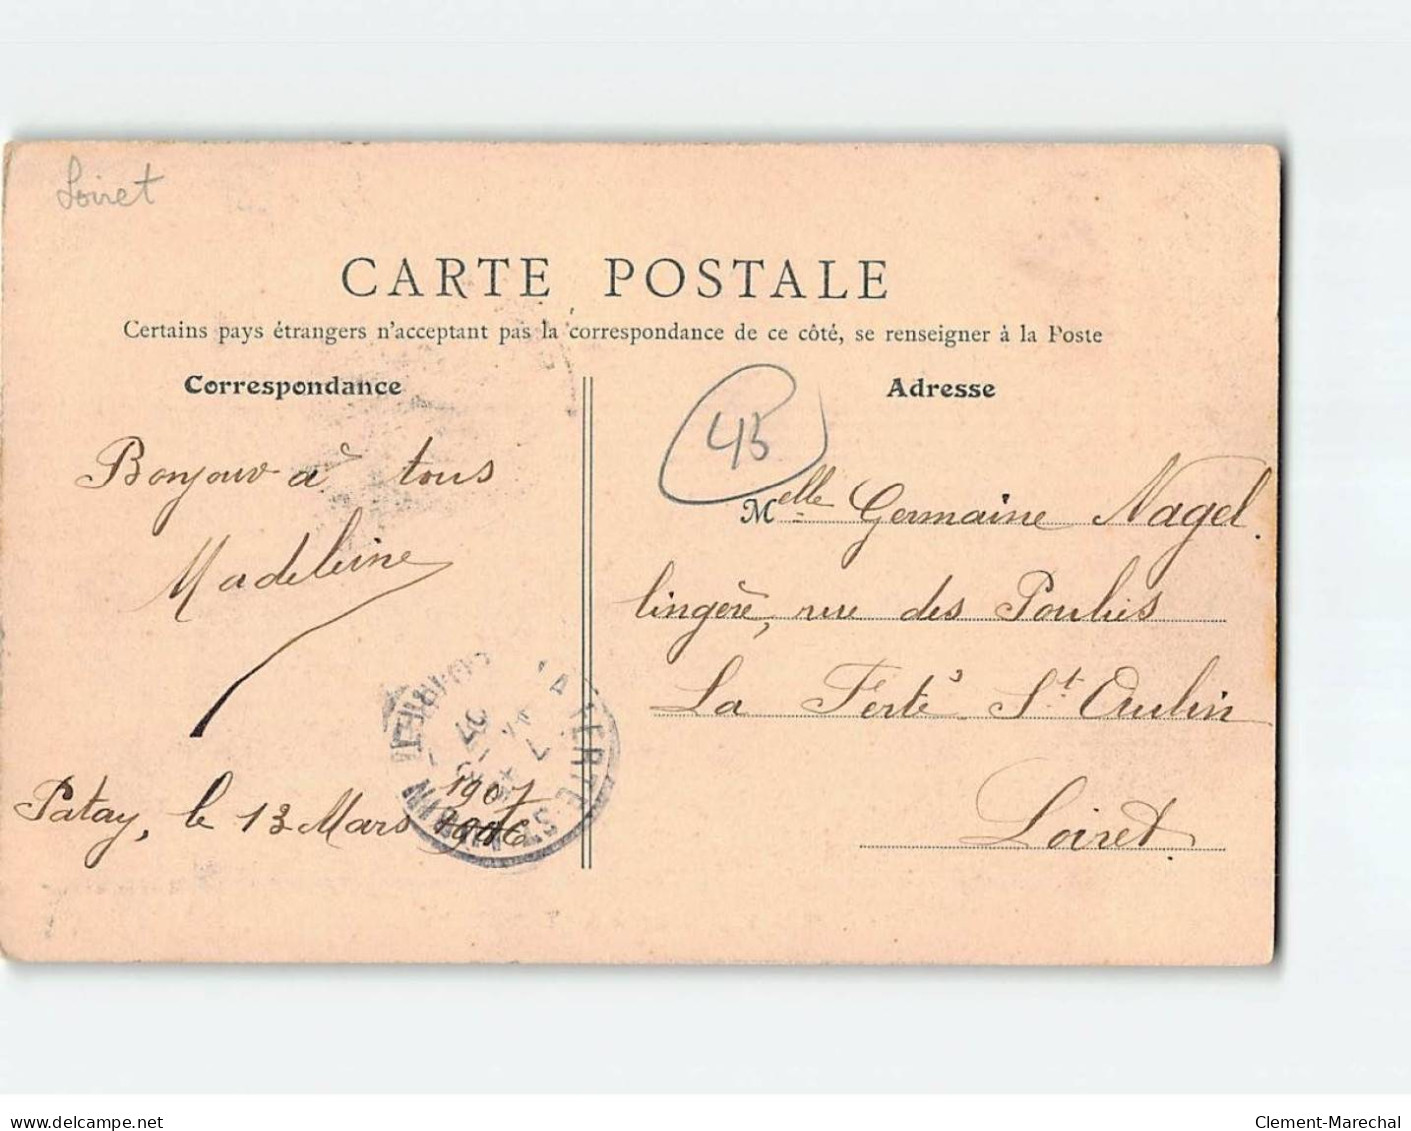 Loiret
CARTE POSTALE
Certains pays étrangers n'acceptant pas la correspondance de ce côté, se renseigner à la Poste
Correspondance
Adresse
45
Bonjour à tous
Madeleine
Patay, le 13 Mars 1907
1906
Melle Germaine Nagel.
lingère, rue des Poulies
La Ferté St. Aubin
Loiret.
LA FERTE-ST-AUBIN
LOIRET
07
www.delcampe.net
Clement-Marechal